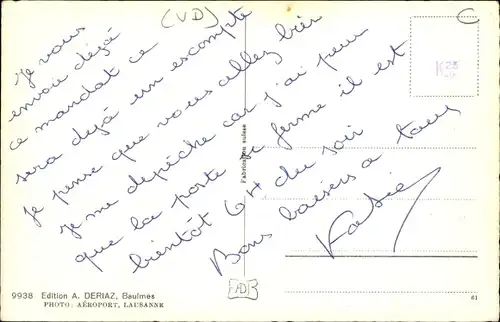 (VD)
C
K 25
Je vous
envoie déjà
ce mandat ce
sera déjà un escompte
je pense que vous allez bien
Je me dépêche car j'ai peur
que la poste ferme il est
bientôt 6H du soir
Bons baisers a tous
Fabrication suisse
9938 Edition A. DERIAZ, Baulmes
PHOTO: AÉROPORT, LAUSANNE
AD
61